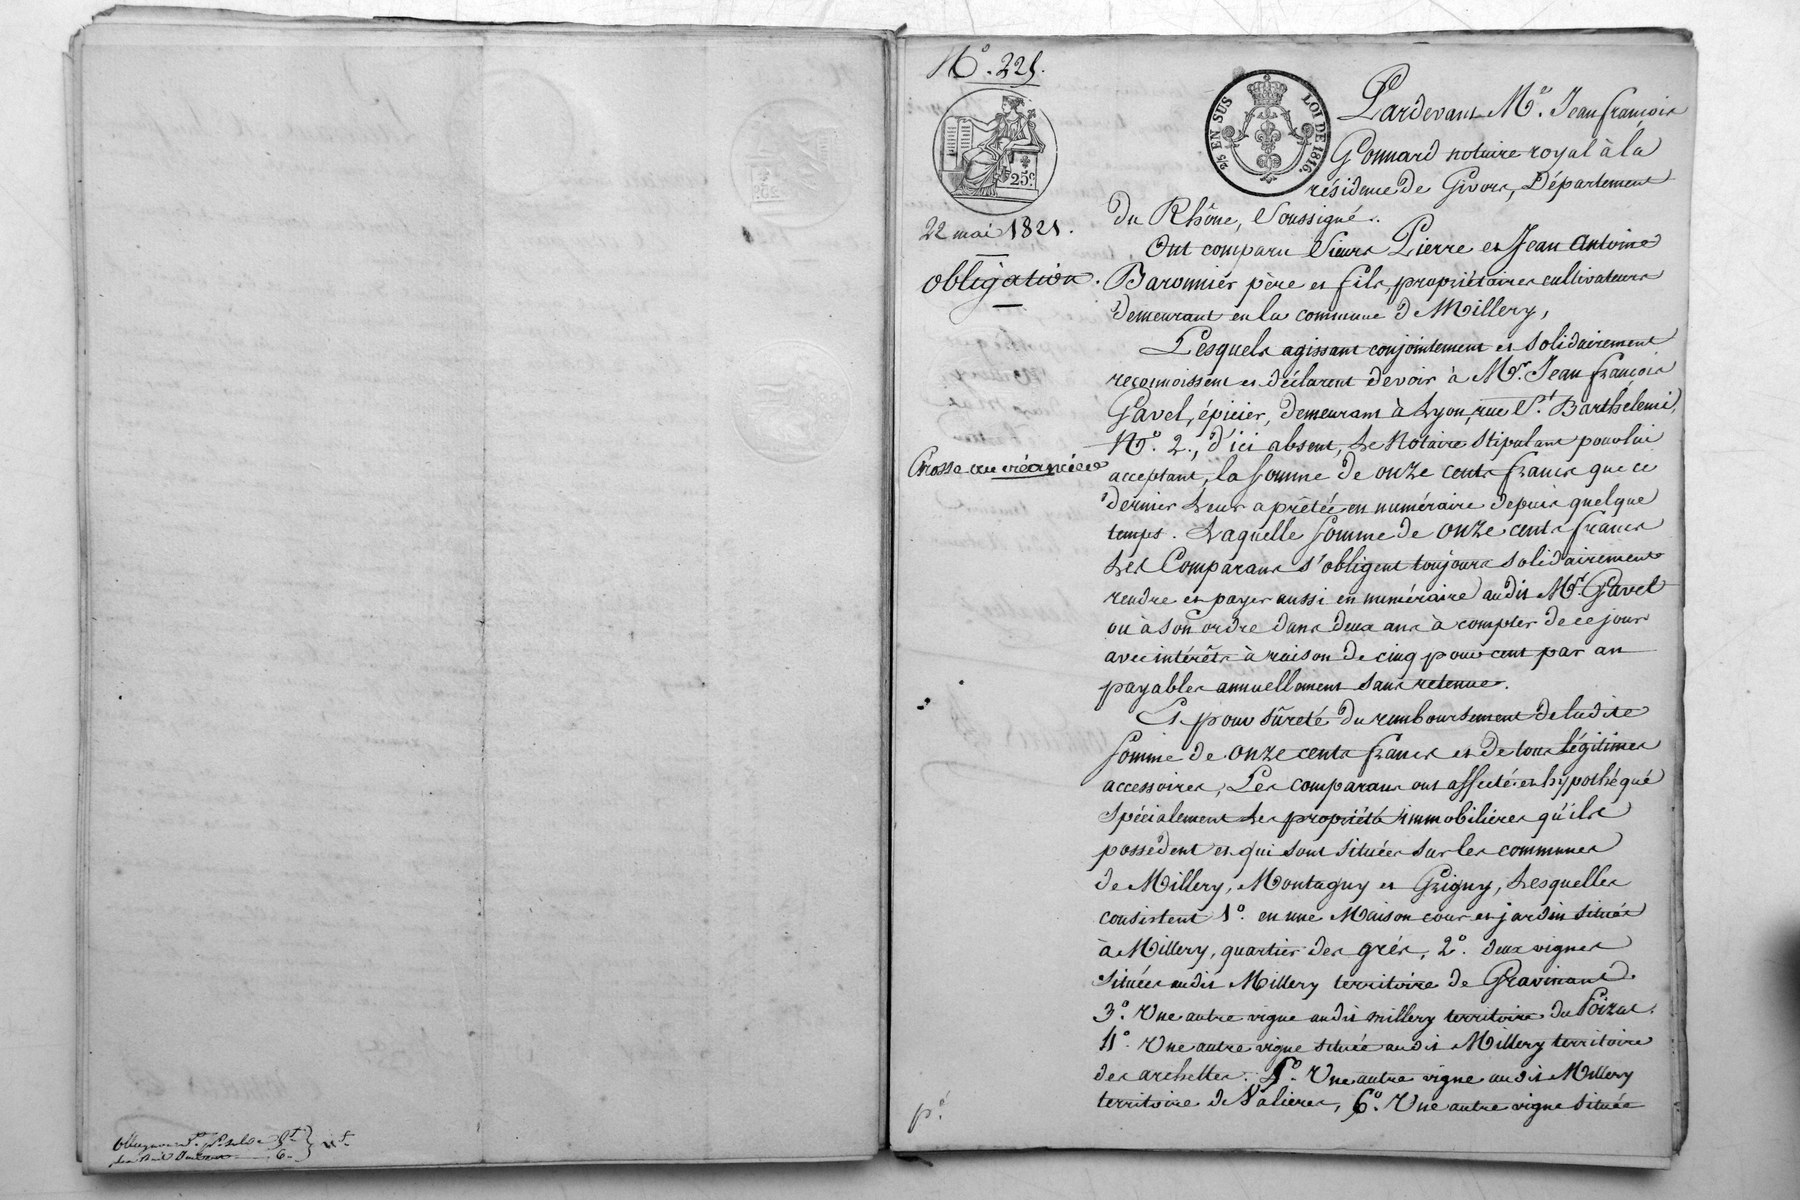 N.o 225.
25c.
2/5 EN SUS
LOI DE 1816.
22 mai 1821.
obligation.
Grosse au créancier
Pardevant M.e Jean françois
Gonnard notaire royal à la
résidence de Givors, Département
du Rhône, Soussigné.
Ont comparu Sieurs Pierre et Jean Antoine
Baronnier père et fils, propriétaires cultivateurs
demeurant en la commune de Millery,
Lesquels agissant conjointement et solidairement
reconnoissent et déclarent devoir à Mr. Jean françois
Gavel, épicier, demeurant à Lyon, rue St. Barthelemi,
N.o 2., d'ici absent, Le Notaire stipulant pour lui
acceptant, la somme de onze cents francs que ce
dernier leur a prêtée en numéraire depuis quelque
temps. Laquelle somme de onze cents francs
Les Comparans s'obligent toujours solidairement
rendre et payer aussi en numéraire audit Mr. Gavel
ou à son ordre dans deux ans à compter de ce jour
avec intérêts à raison de cinq pour cent par an
payables annuellement sans retenue.
Et pour sûreté du remboursement de ladite
somme de onze cents francs et de tous légitimes
accessoires, Les comparans ont affecté et hypothéqué
spécialement les propriétés immobilières qu'ils
possèdent et qui sont situées sur les communes
de Millery, Montagny et Grigny, Lesquelles
consistent 1.o en une Maison cour et jardin située
à Millery, quartier des grès, 2.o deux vignes
situées audit Millery territoire de Gravinant.
3.o Une autre vigne audit millery territoire du Poizat.
4.o Une autre vigne située audit Millery territoire
des archettes. 5.o Une autre vigne audit Millery
territoire de Valières, 6.o Une autre vigne située